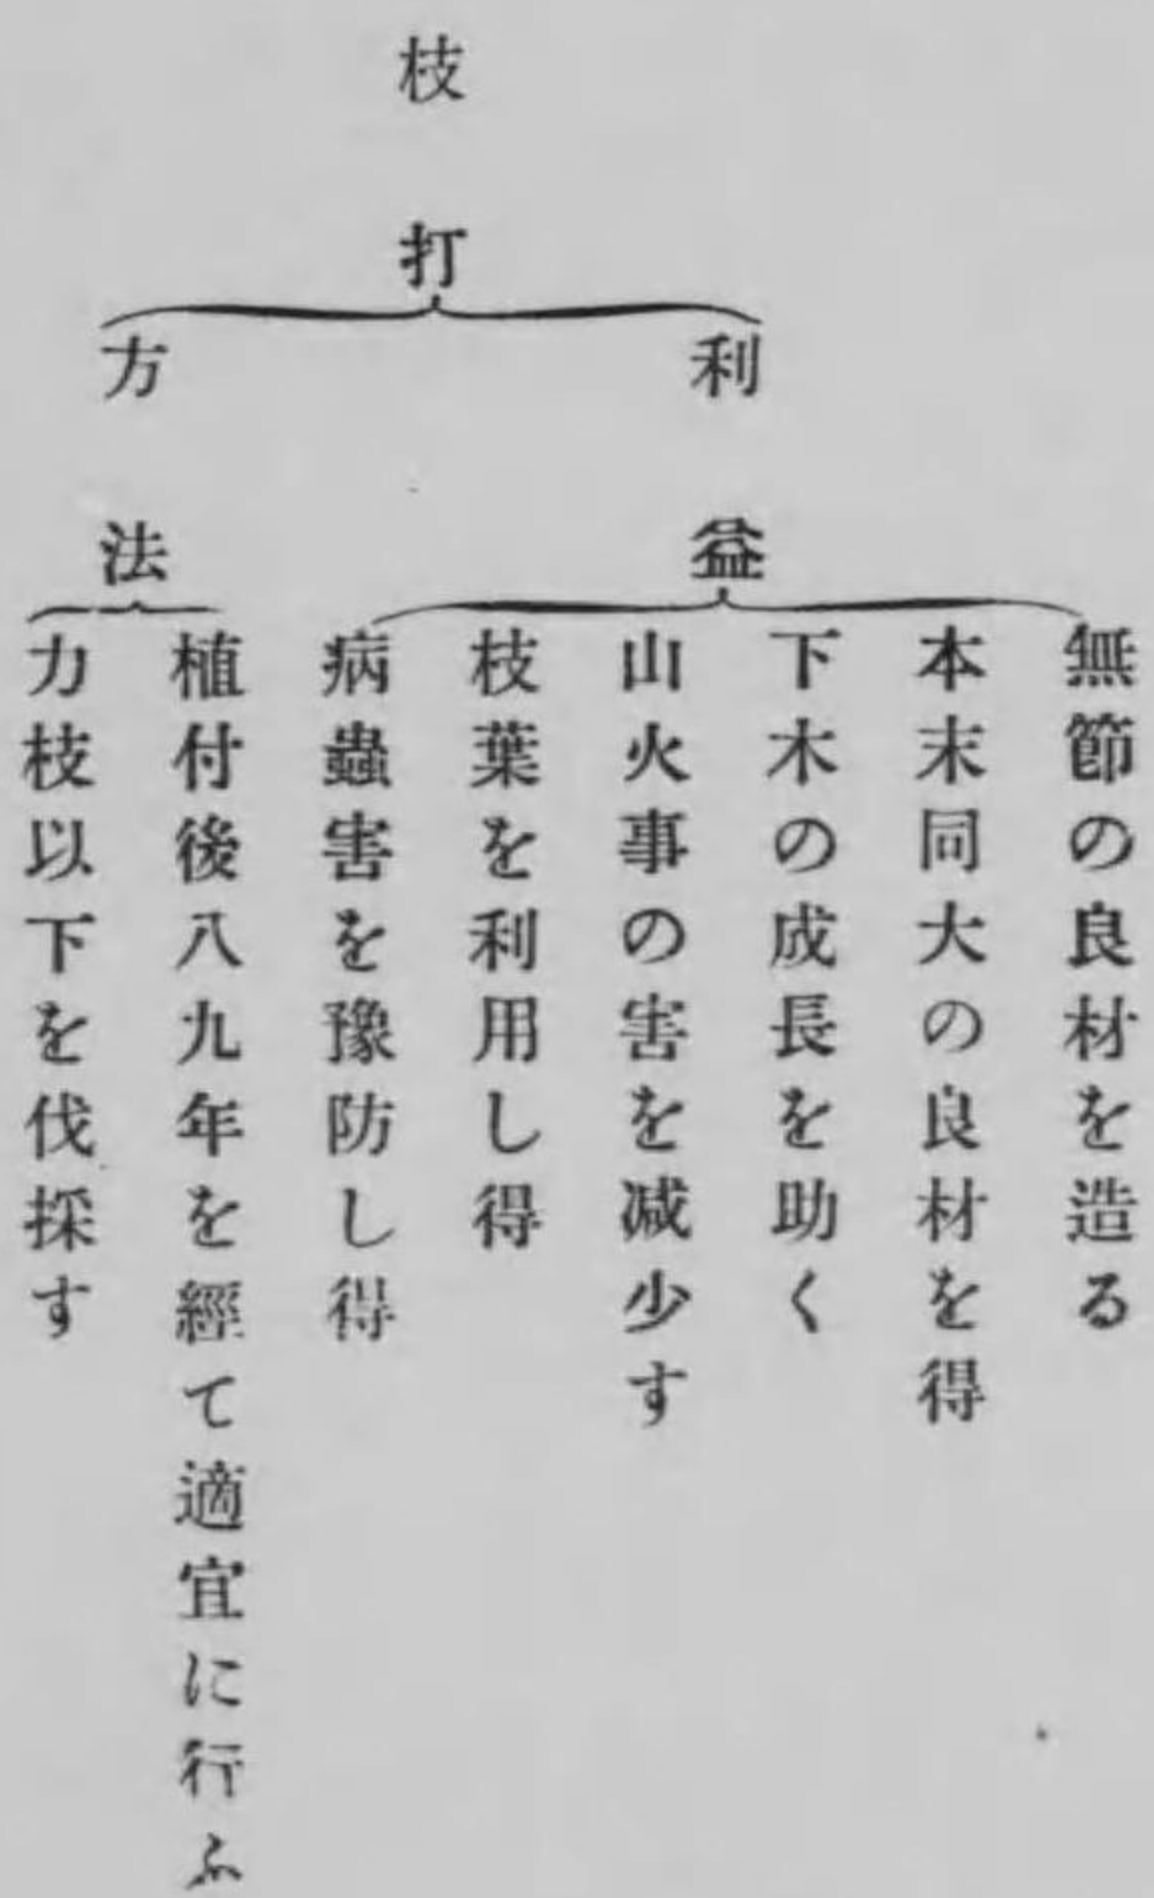 枝打
利益
無節の良材を造る
本末同大の良材を得
下木の成長を助く
山火事の害を减少す
枝葉を利用し得
病蟲害を豫防し得
方法
植付後八九年を經て適宜に行ふ
力枝以下を伐採す